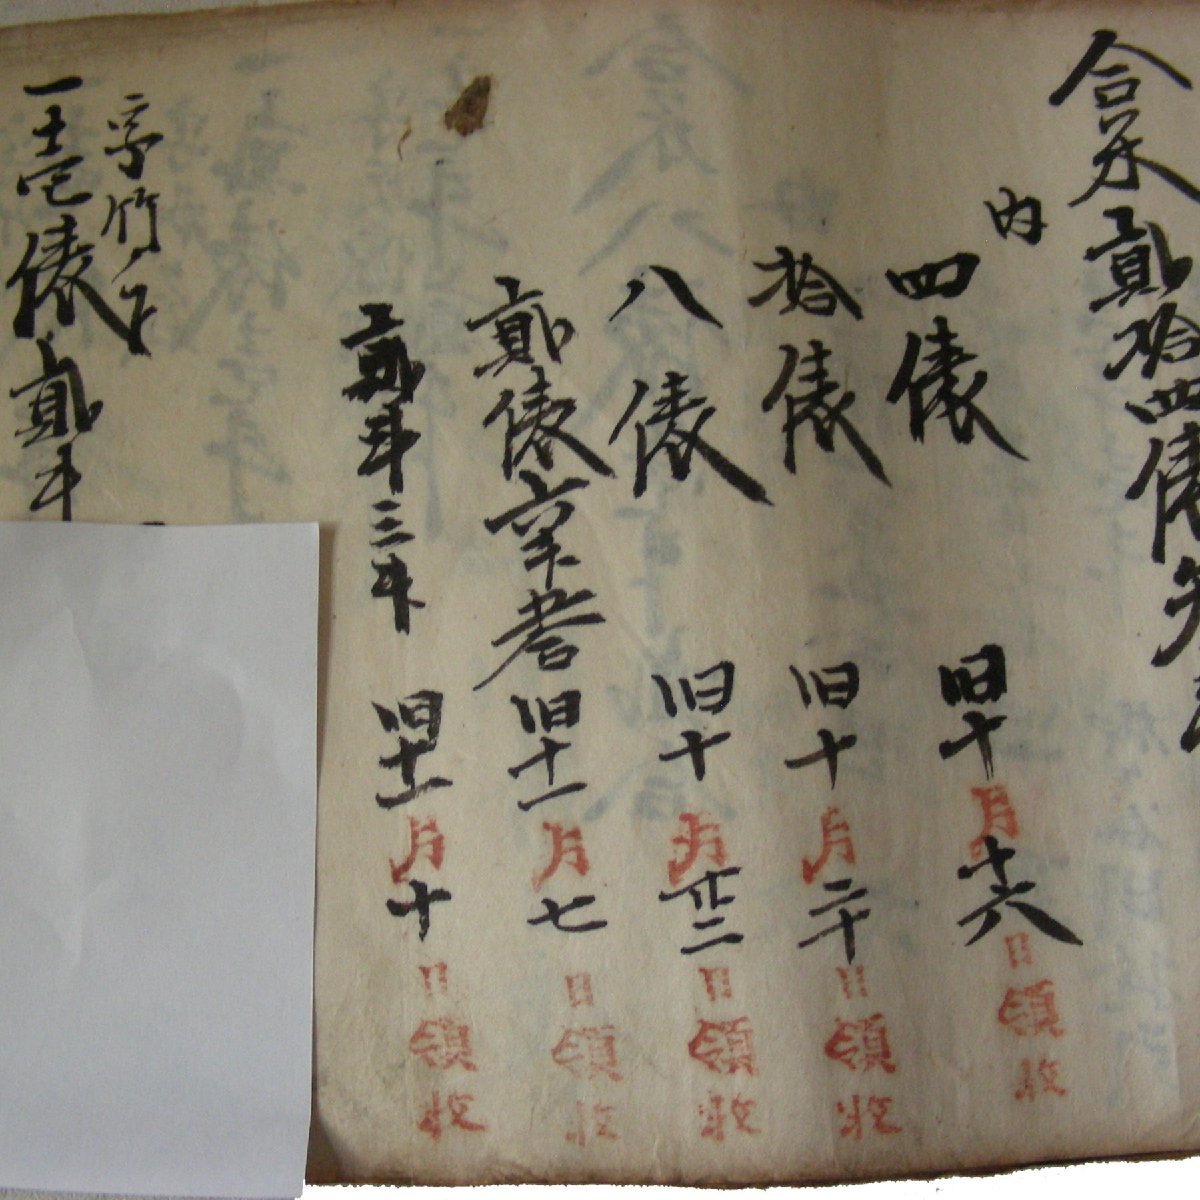 合米貳拾四俵
内
四俵 旧十月十六日領收
拾俵 旧十月二十日領收
八俵 旧十月廿二日領收
貳俵 旧十一月七日領收
貳斗三升 旧十一月十日領收
竹下
一壱俵貳斗